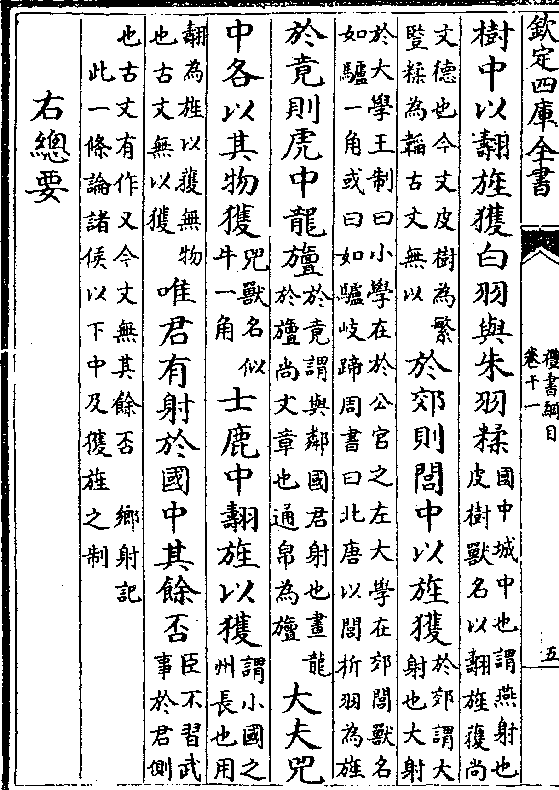 欽定四庫全書
禮書綱目
卷十一
五
樹中以翿旌獲白羽與朱羽糅國中城中也謂燕射也
皮樹獸名以翿旌獲尚
文德也今文皮樹為繁
豎糅為韜古文無以於郊則閭中以旌獲於郊謂大
射也大射
於大學王制曰小學在於公宮之左大學在郊閭獸名
如驢一角或曰如驢岐蹄周書曰北唐以閭析羽為旌
於竟則虎中龍旜於竟謂與鄰國君射也畫龍
於旜尚文章也通帛為旜大夫兕
中各以其物獲兕獸名似
牛一角士鹿中翿旌以獲謂小國之
州長也用
翿為旌以獲無物
也古文無以獲唯君有射於國中其餘否臣不習武
事於君側
也古文有作又今文無其餘否 鄉射記
此一條論諸侯以下中及獲旌之制
右總要